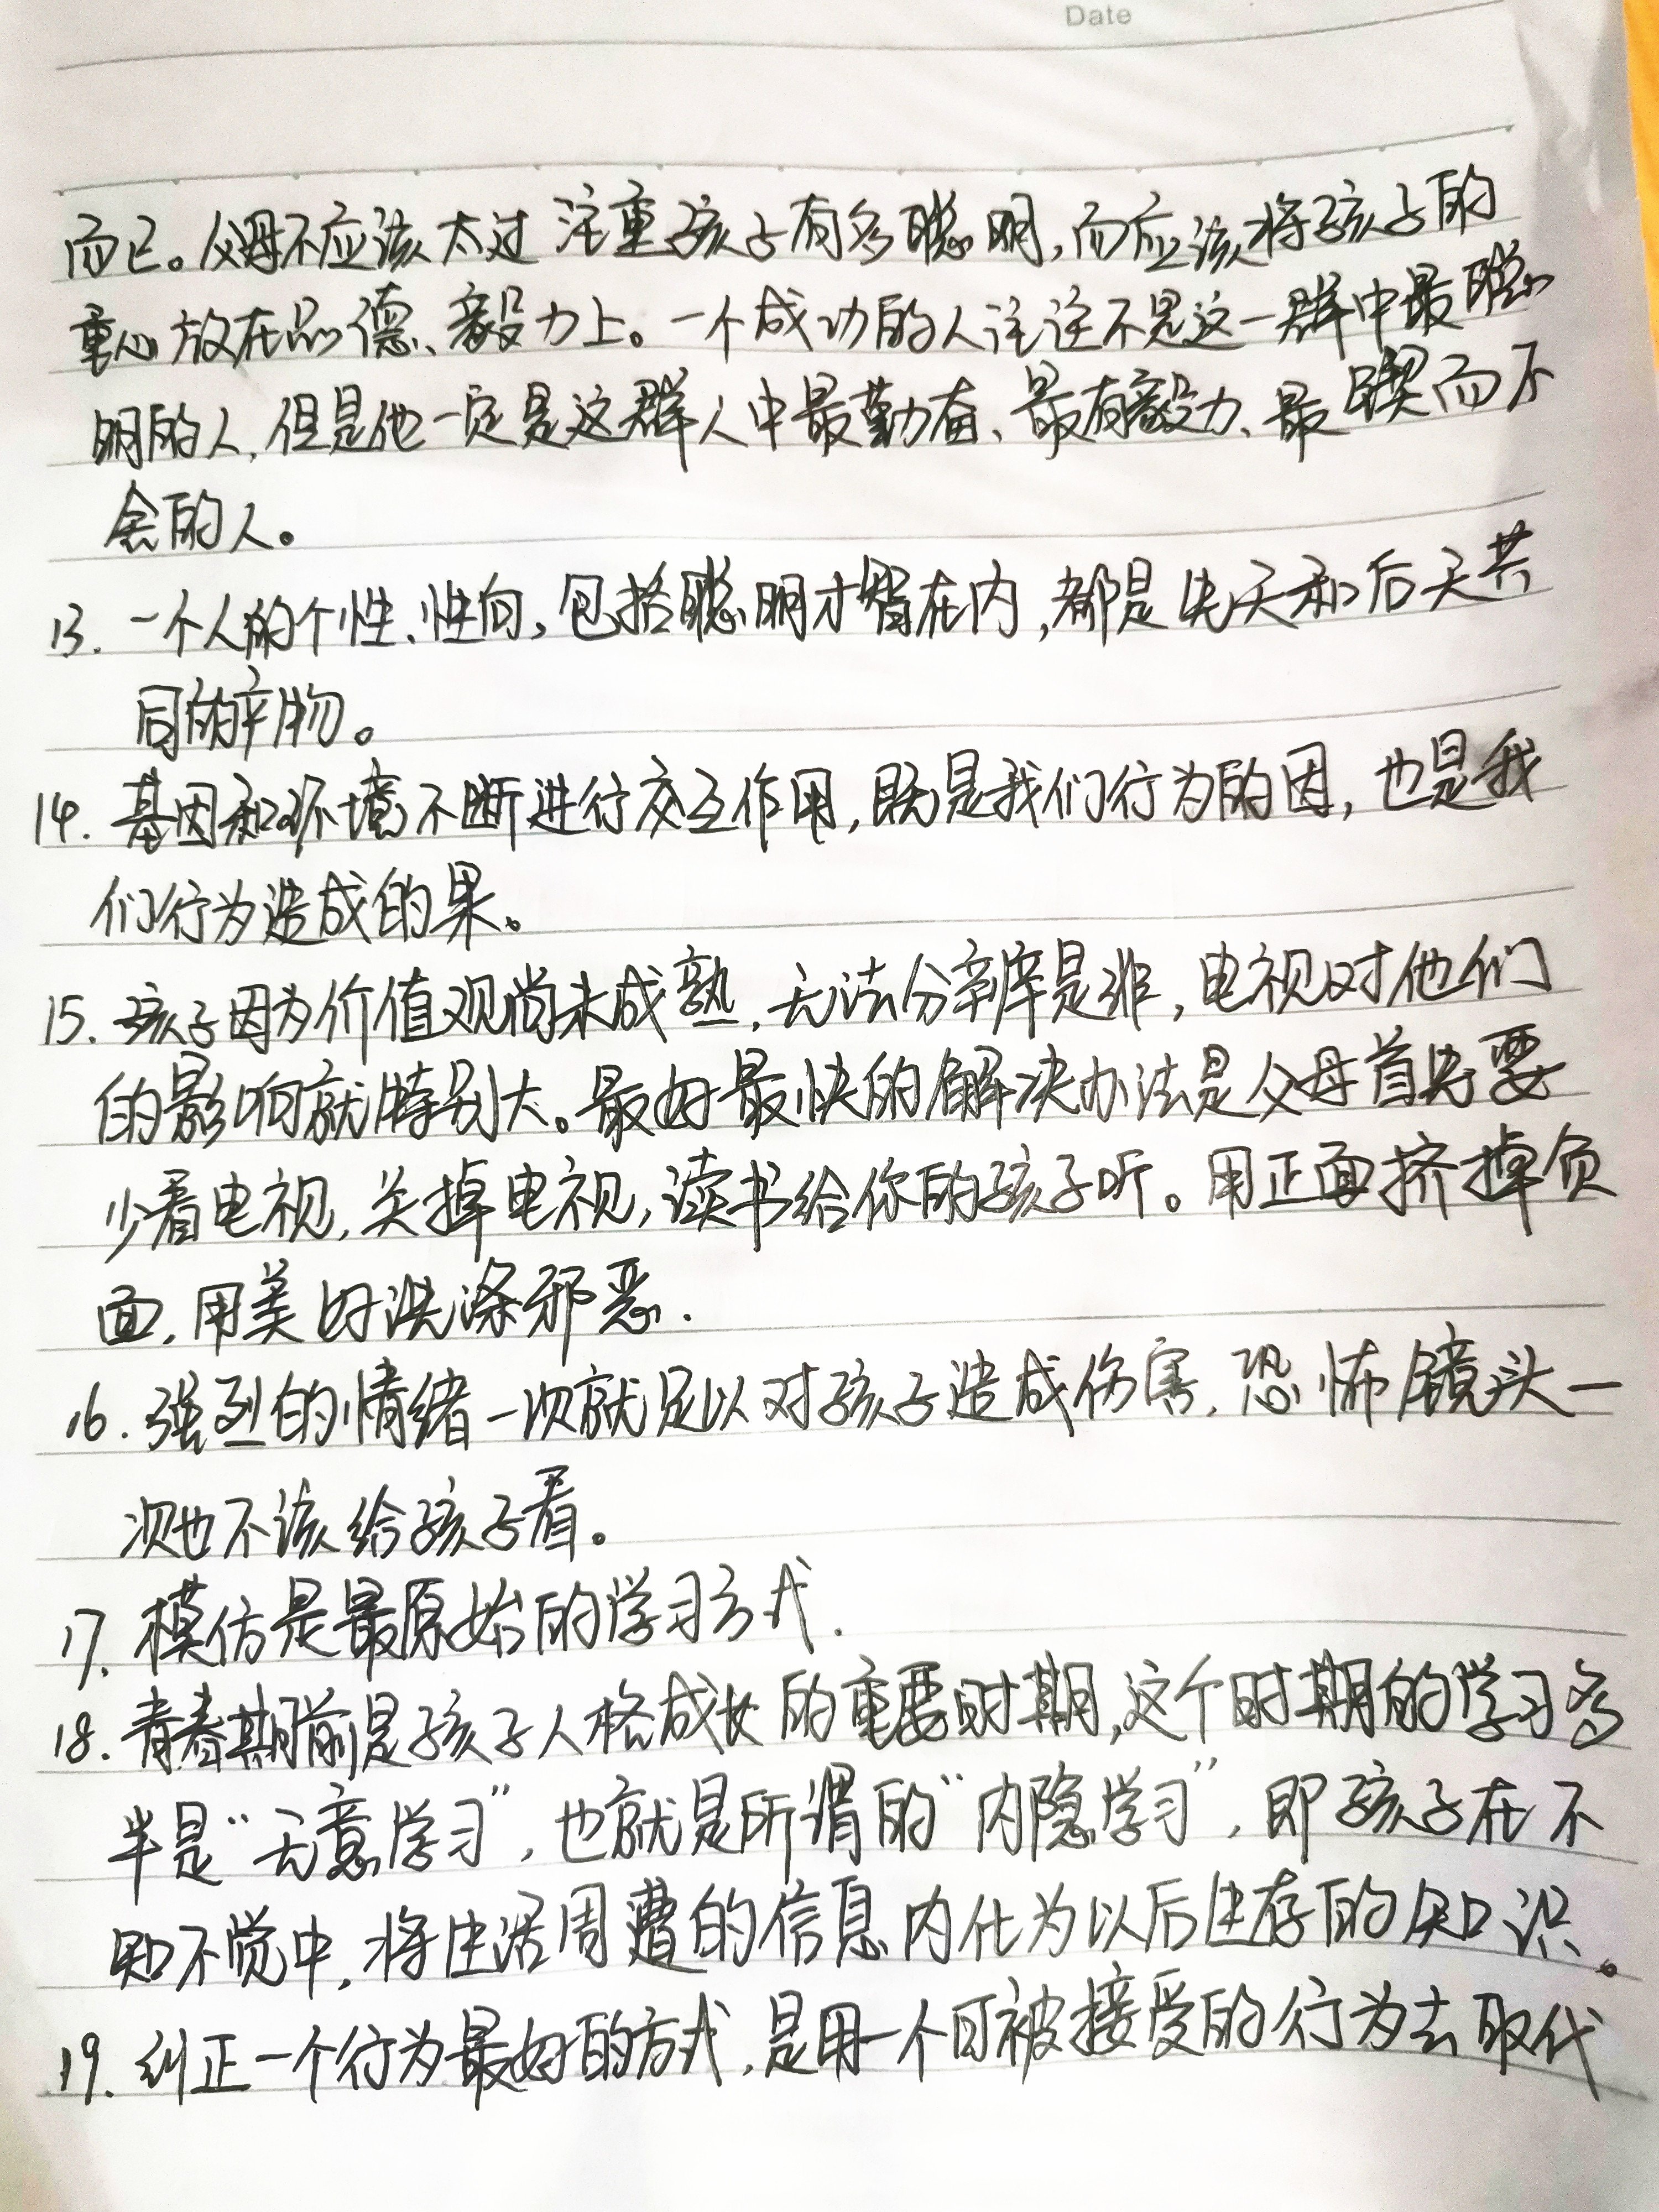 Date
而已。父母不应该太过注重孩子有多聪明，而应该将孩子的
重心放在品德、毅力上。一个成功的人往往不是这一群中最聪
明的人，但是他一定是这群人中最勤奋、最有毅力、最锲而不
舍的人。
13. 一个人的个性、性向，包括聪明才智在内，都是先天和后天共
同的产物。
14. 基因和环境不断进行交互作用，既是我们行为的因，也是我
们行为造成的果。
15. 孩子因为价值观尚未成熟，无法分辨是非，电视对他们
的影响就特别大。最好最快的解决办法是父母首先要
少看电视，关掉电视，读书给你的孩子听。用正面挤掉负
面，用美好洗涤邪恶.
16. 强烈的情绪一次就足以对孩子造成伤害，恐怖镜头一
次也不该给孩子看。
17. 模仿是最原始的学习方式.
18. 青春期前是孩子人格成长的重要时期，这个时期的学习多
半是“无意学习”，也就是所谓的“内隐学习”，即孩子在不
知不觉中，将生活周遭的信息内化为以后生存的知识。
19. 纠正一个行为最好的方式，是用一个可被接受的行为去取代